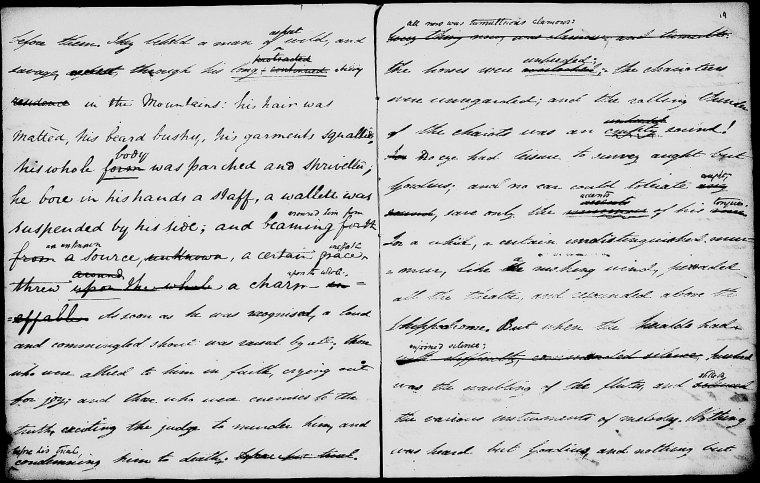 before them. They beheld a man of aspect wild, and
savage, through his long protracted continued stay
residence in the Mountains: his hair was
matted, his beard bushy, his garments squallid,
his whole form body was parched and shrivelled;
he bore in his hands a staff, a wallet was
suspended by his side; and beaming forth around him from
from an unknown a source, unknown, a certain grace
threw upon the whole around a charm
effable. As soon as he was recognised, a loud
and commingled shout was raised by all; those
who were allied to him in faith, crying out
for joy; and those who were enemies to the
truth, exciting the judge to murder him, and
before his trial,
condemning him to death, before his trial.
19
all now was tumultuous clamour:
every thing now was clamour, and tumult.
the horses were unheeded; the charioteers
were unregarded; and the rolling thunder
of the chariots was an empty sound!
No eye had leisure to survey aught but
Gordius, and no ear could tolerate
sound, save only the accents of his tongue.
In a word, a certain undistinguished mur-
mur, like a rushing wind, pervaded
all the theatre, and resounded above the
Hippodrome. But when the heralds had
enjoined silence;
with difficulty, commanded silence, hushed
was the warbling of the flutes, and
the various instruments of melody. Nothing
was heard but Gordius, and nothing but